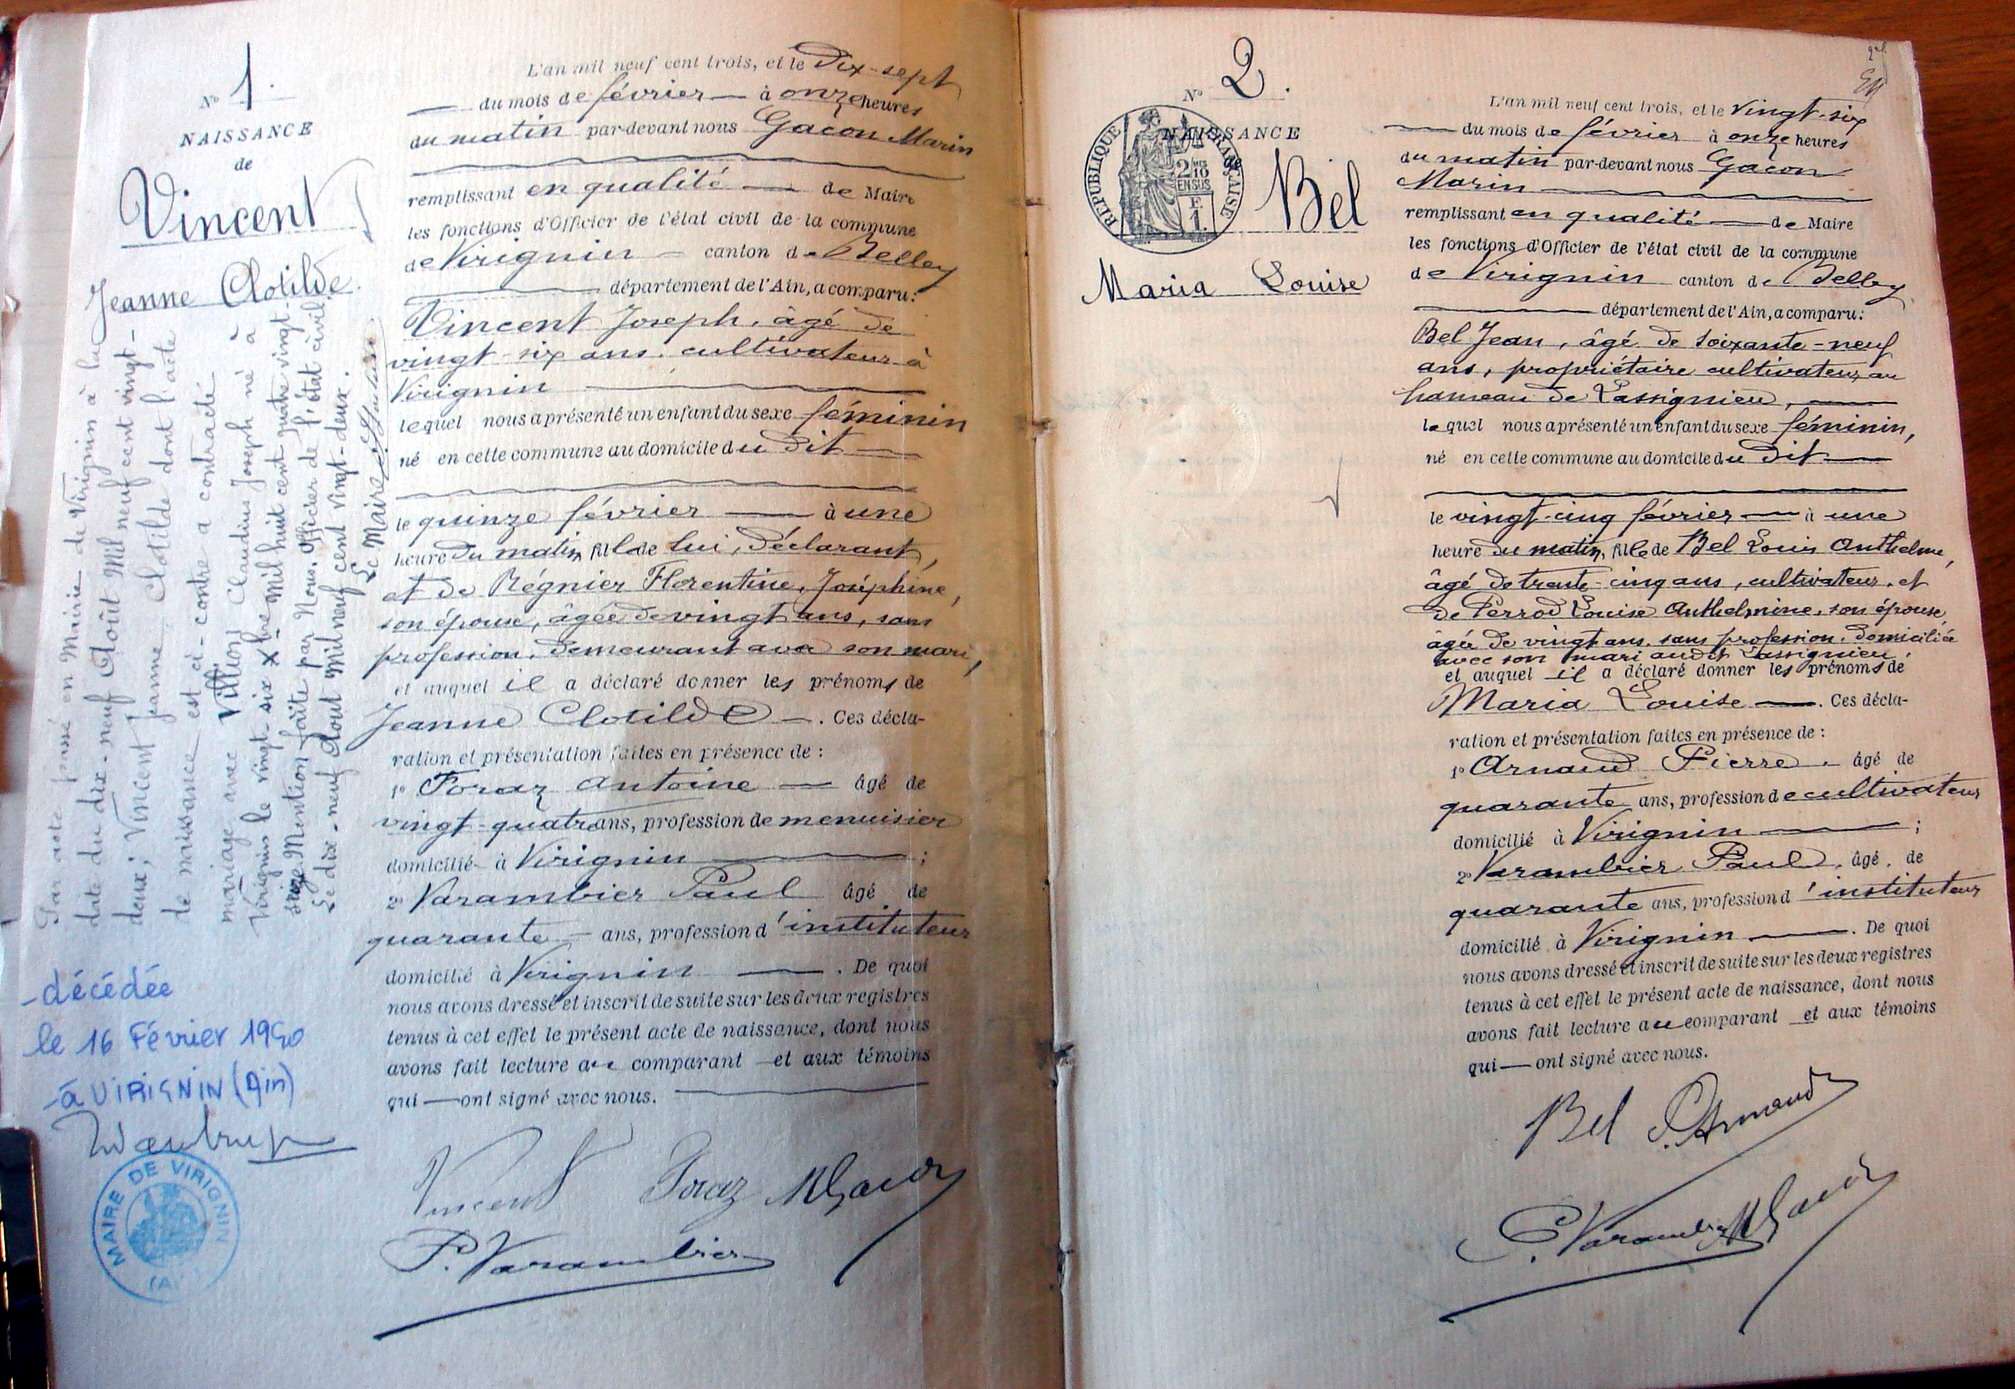 N° 1.
NAISSANCE
de
Vincent
Jeanne Clotilde
Par acte passé en Mairie de Virignin à la
date du dix-neuf Août Mil neuf cent vingt-
deux; Vincent Jeanne Clotilde dont l'acte
de naissance est ci-contre a contracté
mariage avec Claudius Joseph né à
Virignin le vingt-six Xbre Mil huit cent quatre vingt
Mention faite par Nous, Officier de l'état civil
Le dix-neuf Aout Mil neuf cent vingt-deux.
Le Maire
-décédée
le 16 Février 1990
-à VIRIGNIN (Ain)
MAIRIE DE VIRIGNIN
(AIN)
L'an mil neuf cent trois, et le Dix-sept
du mois de février à onze heures
du matin par-devant nous Gacon Marin
remplissant en qualité de Maire
les fonctions d'Officier de l'état civil de la commune
de Virignin canton de Belley
département de l'Ain, a comparu:
Vincent Joseph, âgé de
vingt-six ans, cultivateur à
Virignin
lequel nous a présenté un enfant du sexe féminin
né en cette commune au domicile du dit
le quinze février à une
heure du matin, fille de lui, déclarant,
et de Régnier Florentine, Joséphine,
son épouse, âgée de vingt ans, sans
profession, demeurant avec son mari,
et auquel il a déclaré donner les prénoms de
Jeanne Clotilde. Ces décla-
ration et présentation faites en présence de :
1° Foraz Antoine âgé de
vingt-quatre ans, profession de menuisier
domicilié à Virignin ;
2° Varambier Paul âgé de
quarante ans, profession d'instituteur
domicilié à Virignin. De quoi
nous avons dressé et inscrit de suite sur les deux registres
tenus à cet effet le présent acte de naissance, dont nous
avons fait lecture au comparant et aux témoins
qui ont signé avec nous.
Vincent Foraz MGacon
P. Varambier
N° 2.
NAISSANCE
REPUBLIQUE FRANÇAISE
2/10 EN SUS
F. 1.
Bel
Maria Louise
L'an mil neuf cent trois, et le vingt-six
du mois de février à onze heures
du matin par-devant nous Gacon
Marin
remplissant en qualité de Maire
les fonctions d'Officier de l'état civil de la commune
de Virignin canton de Belley
département de l'Ain, a comparu:
Bel Jean, âgé de soixante-neuf
ans, propriétaire cultivateur au
hameau de Lassignieu,
lequel nous a présenté un enfant du sexe féminin,
né en cette commune au domicile du dit
le vingt-cinq février à une
heure du matin, fille de Bel Louis Anthelme,
âgé de trente-cinq ans, cultivateur, et
de Perrod Louise Anthelmine, son épouse,
âgée de vingt ans, sans profession, domiciliée
avec son mari audit Lassignieu
et auquel il a déclaré donner les prénoms de
Maria Louise. Ces décla-
ration et présentation faites en présence de :
1° Arnaud Pierre. âgé de
quarante ans, profession de cultivateur
domicilié à Virignin ;
2° Varambier Paul. âgé de
quarante ans, profession d'instituteur
domicilié à Virignin. De quoi
nous avons dressé et inscrit de suite sur les deux registres
tenus à cet effet le présent acte de naissance, dont nous
avons fait lecture au comparant et aux témoins
qui ont signé avec nous.
Bel P. Arnaud
P. Varambier MGacon